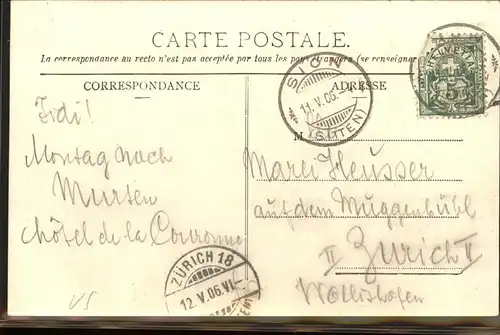 CARTE POSTALE.
La correspondance au recto n'est pas acceptée par tous les pays étrangers (se renseigner
CORRESPONDANCE
ADRESSE
SION
11.V.06.
(SITTEN)
5
M
Montag nach
Murten
Hôtel de la Couronne
Heusser
auf dem Muggenbühl
II Zürich II
Wollishofen
ZÜRICH 18
12.V.06.VI